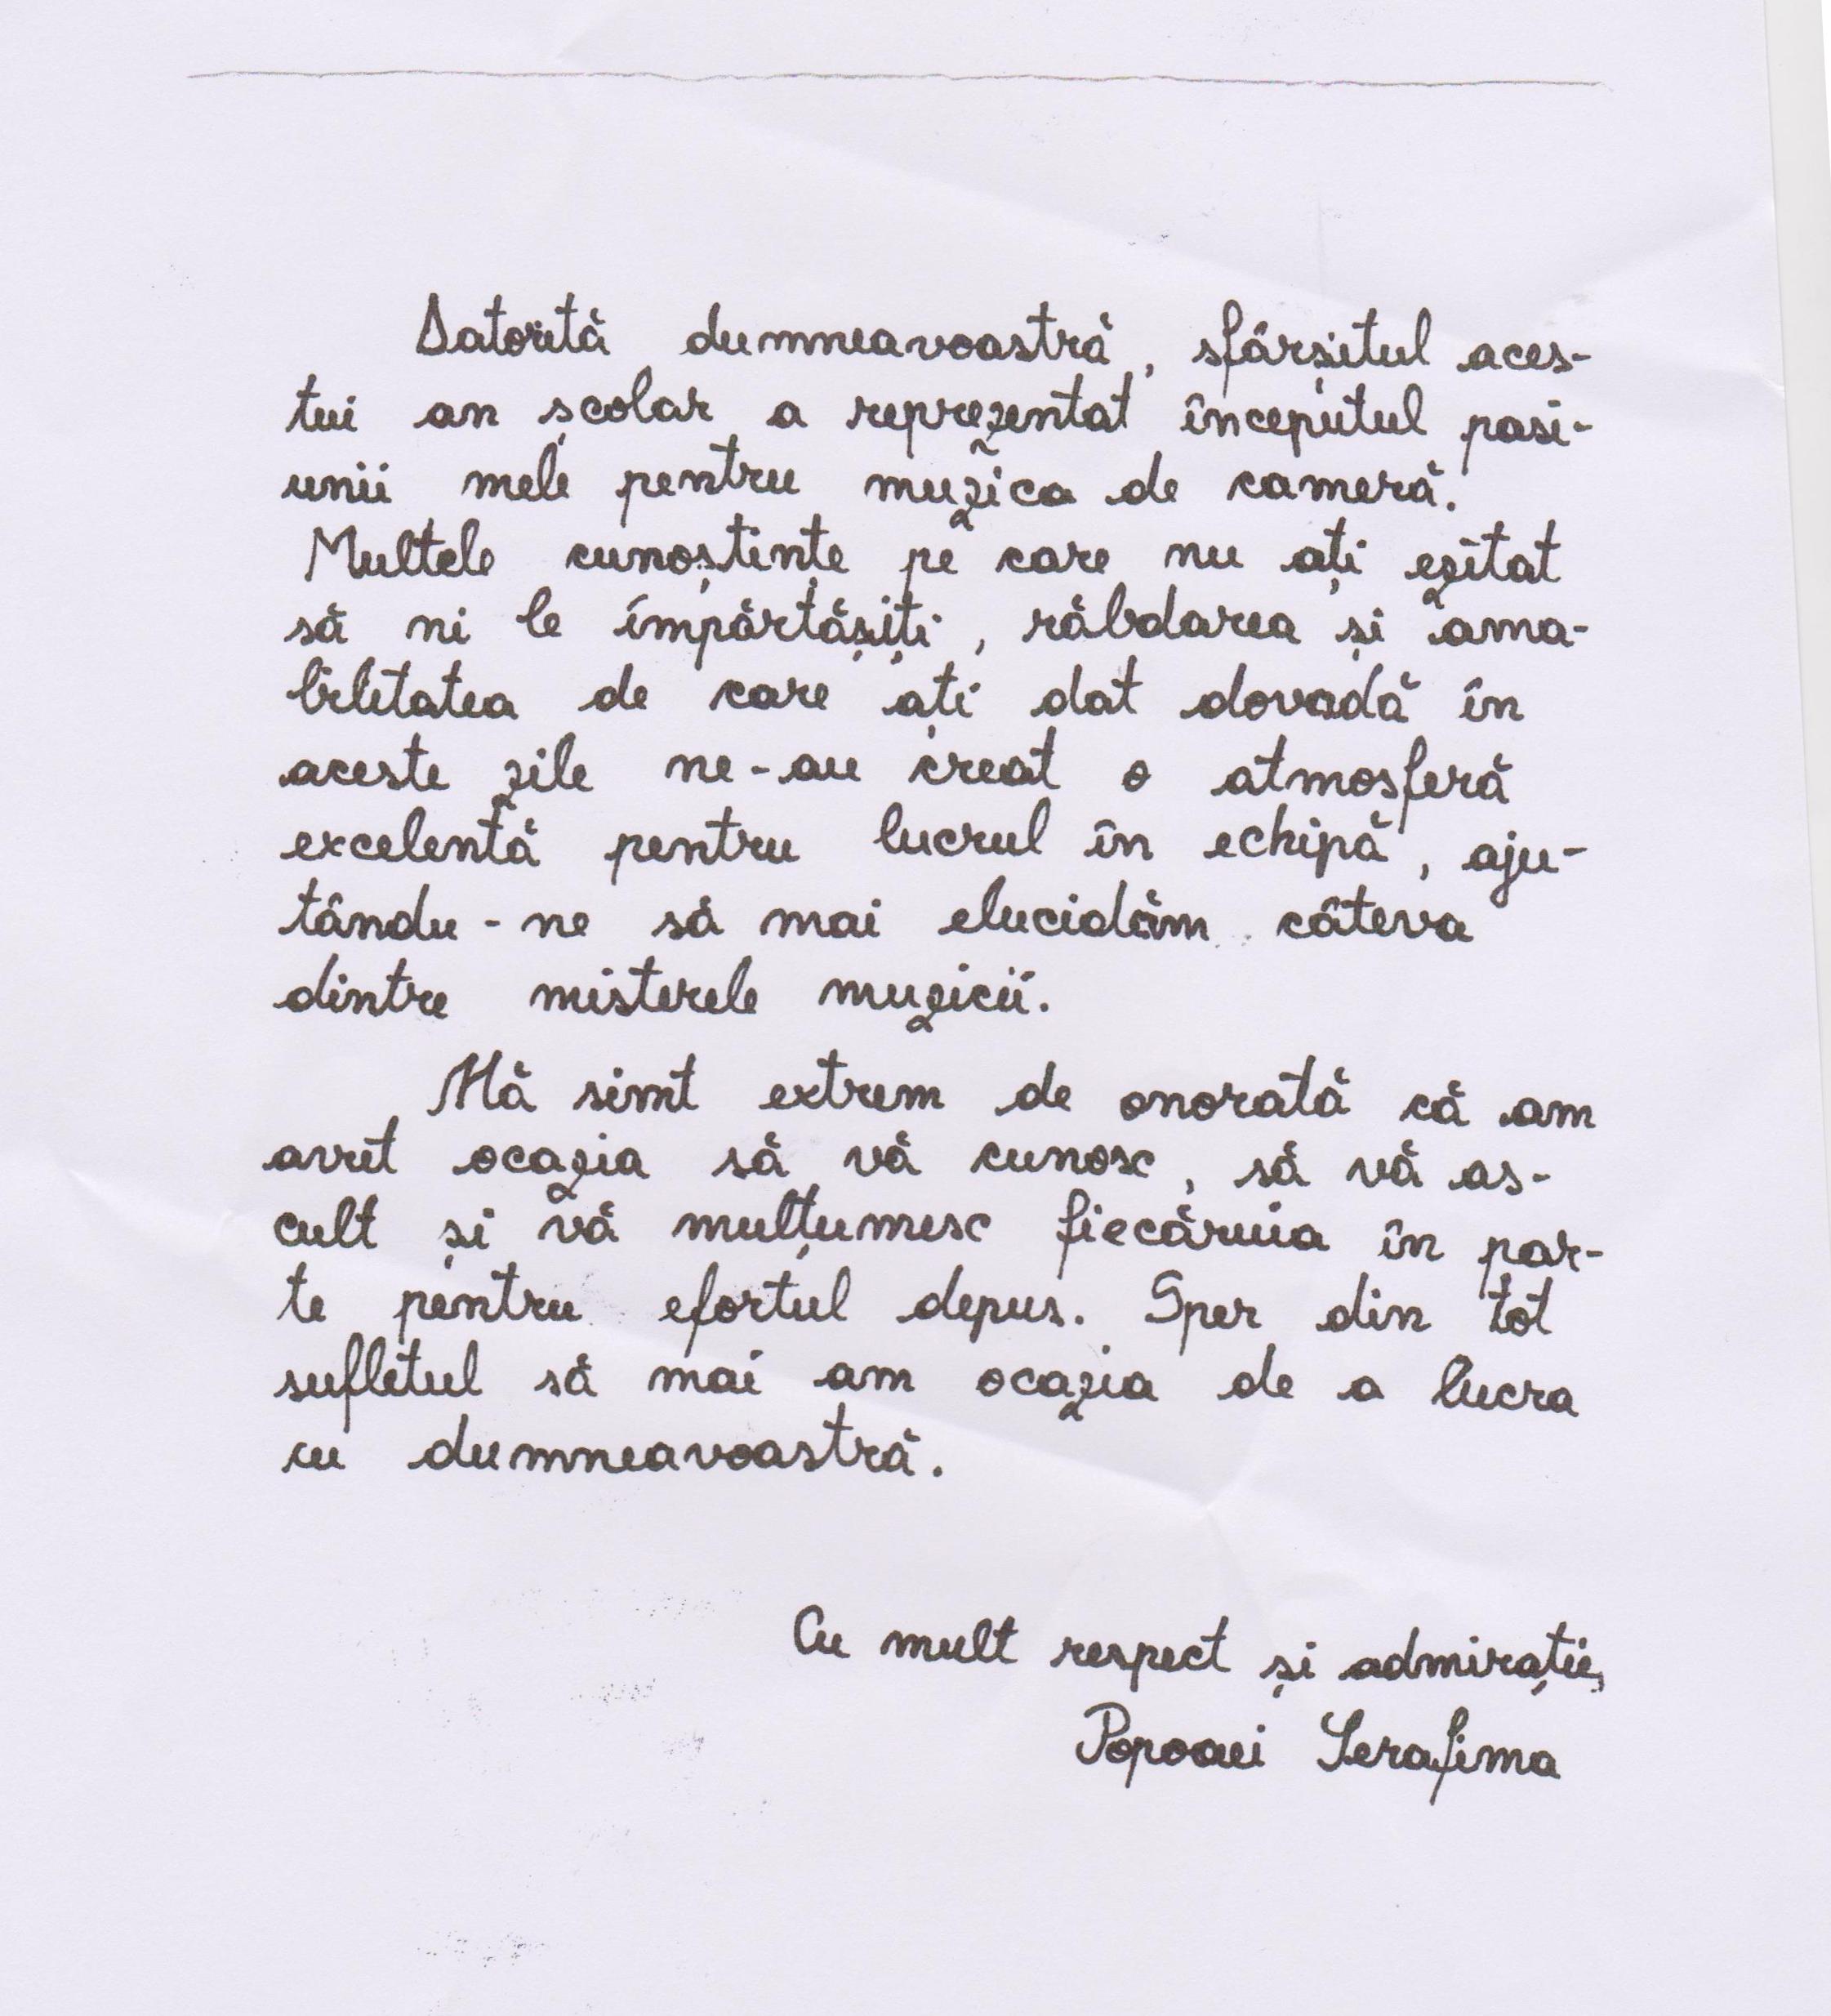 Datorită dumneavoastră, sfârșitul aces-
tui an școlar a reprezentat începutul pasi-
unii mele pentru muzica de cameră.
Multele cunoștințe pe care nu ați ezitat
să ni le împărtășiți, răbdarea și ama-
bilitatea de care ați dat dovadă în
aceste zile ne-au creat o atmosferă
excelentă pentru lucrul în echipă, aju-
tându-ne să mai elucidăm câteva
dintre misterele muzicii.
Mă simt extrem de onorată că am
avut ocazia să vă cunosc, să vă as-
cult și vă mulțumesc fiecăruia în par-
te pentru efortul depus. Sper din tot
sufletul să mai am ocazia de a lucra
cu dumneavoastră.
Cu mult respect și admirație,
Popoaei Serafima